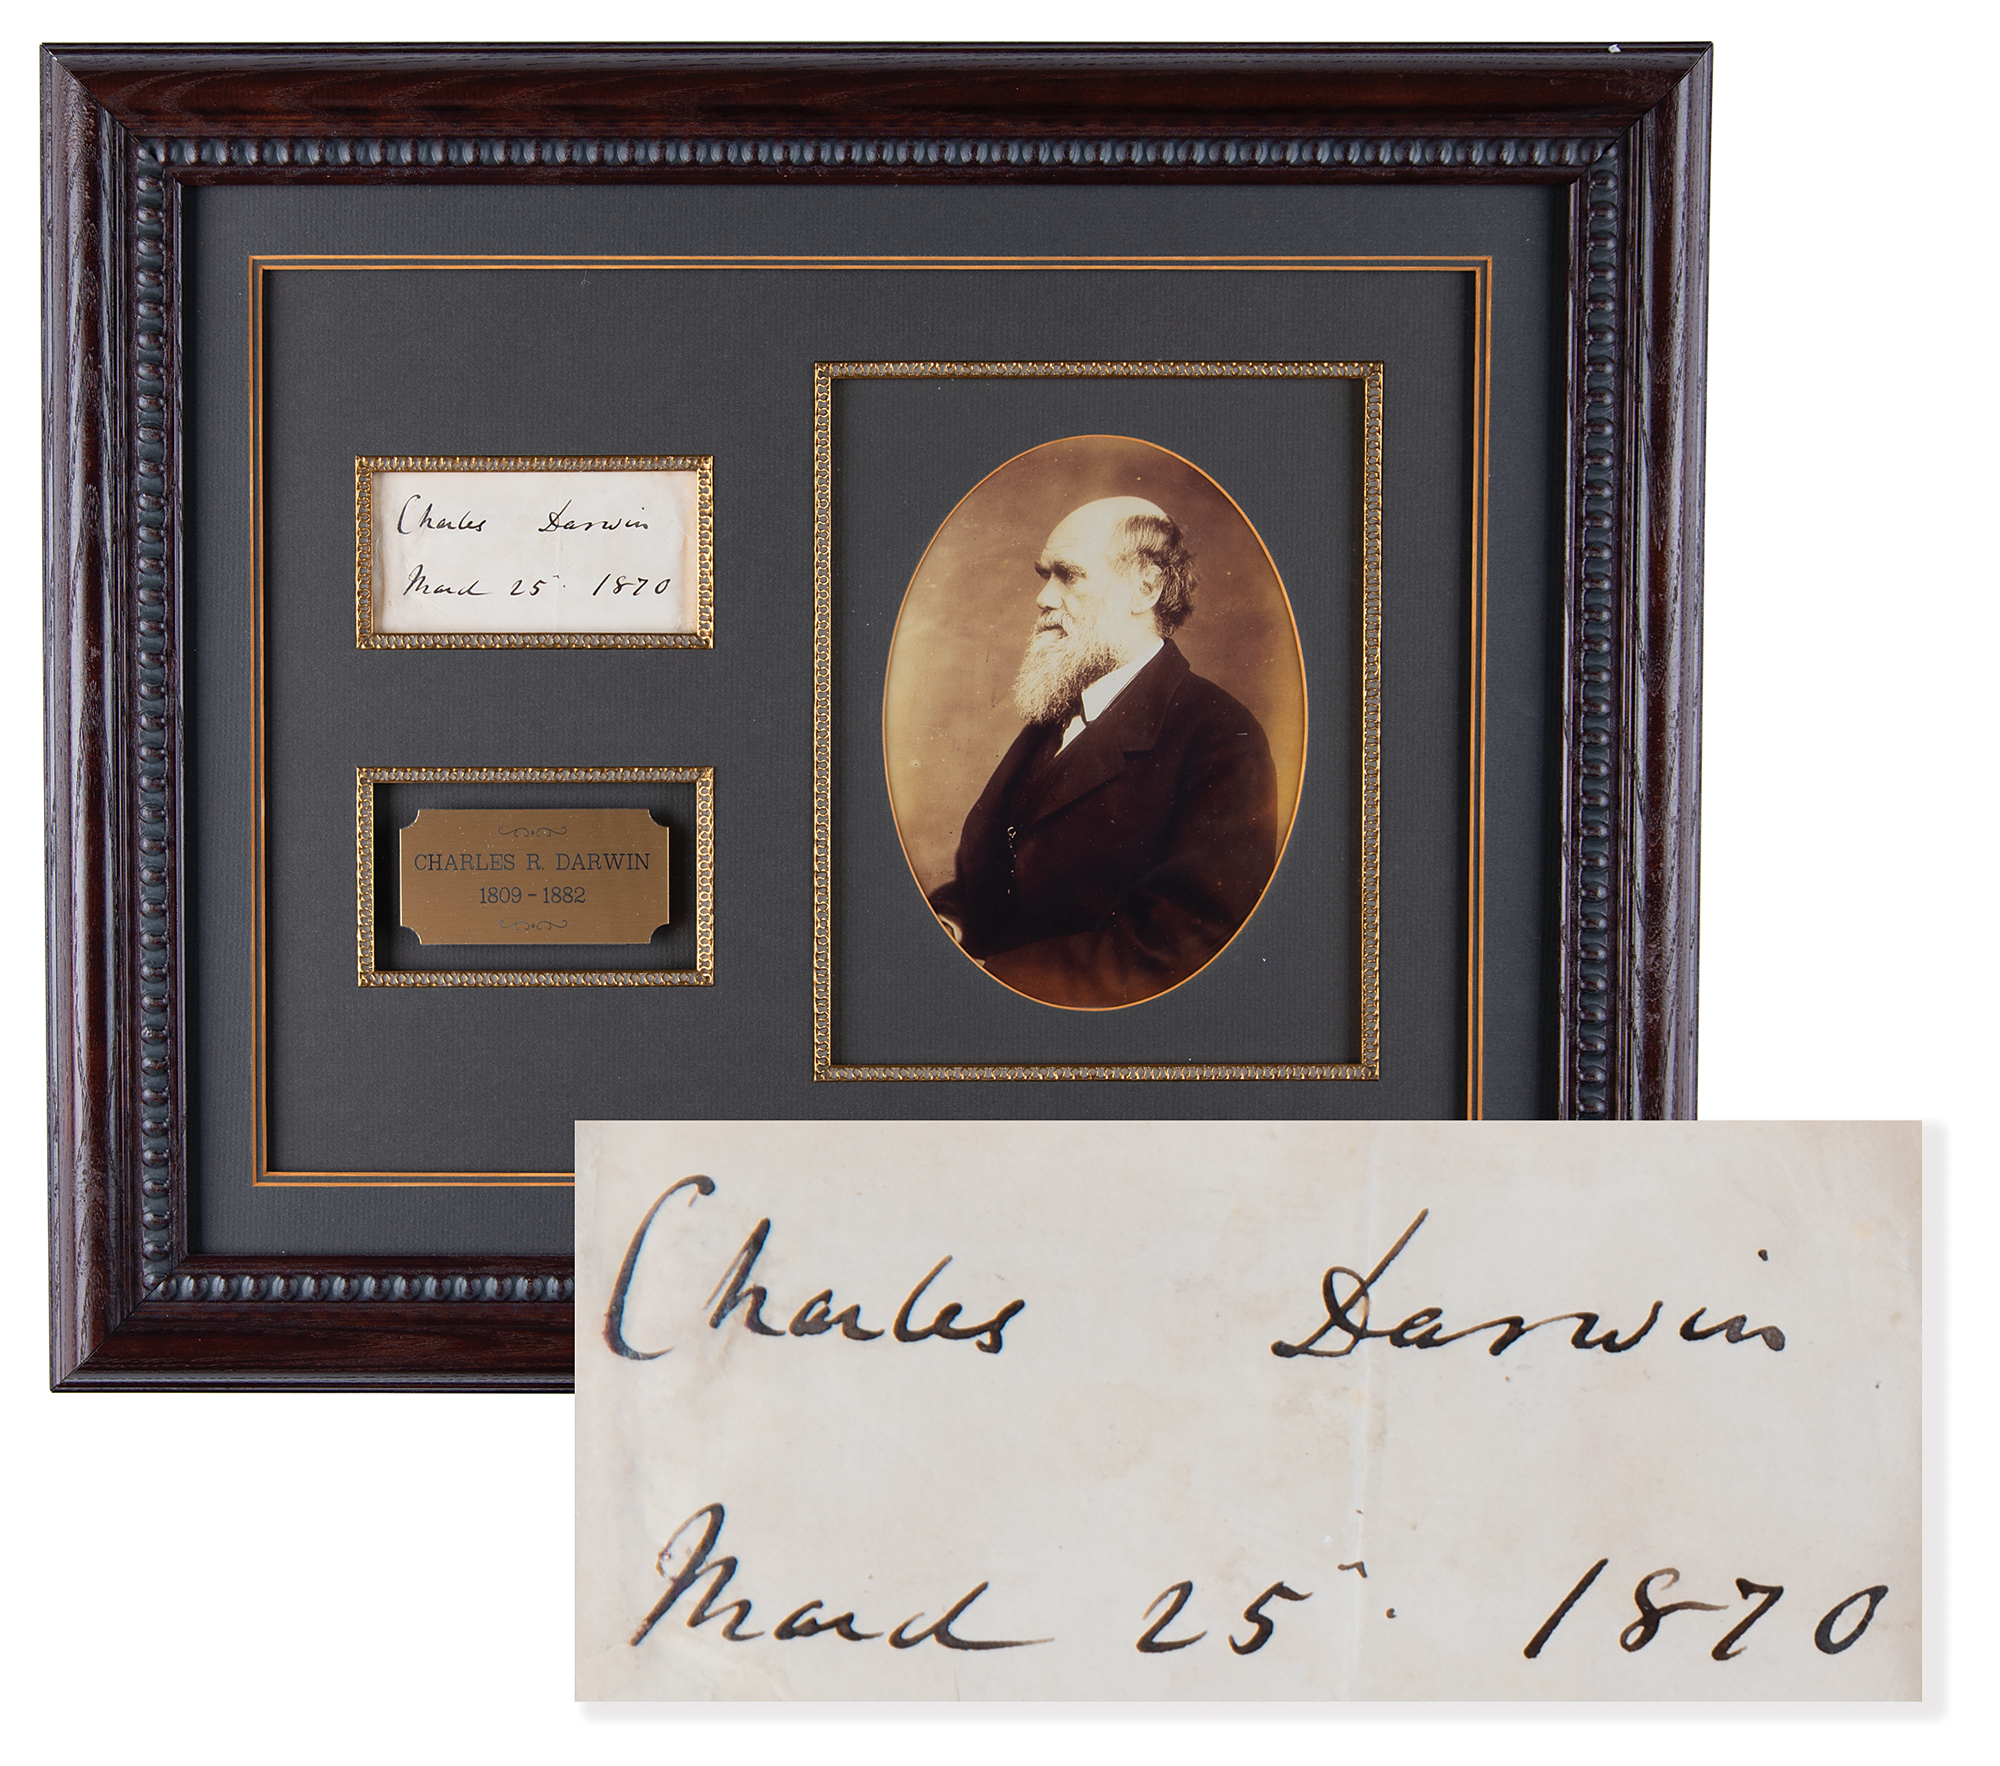 Charles Darwin
March 25th. 1870
CHARLES R. DARWIN
1809 - 1882
Charles Darwin
March 25th. 1870